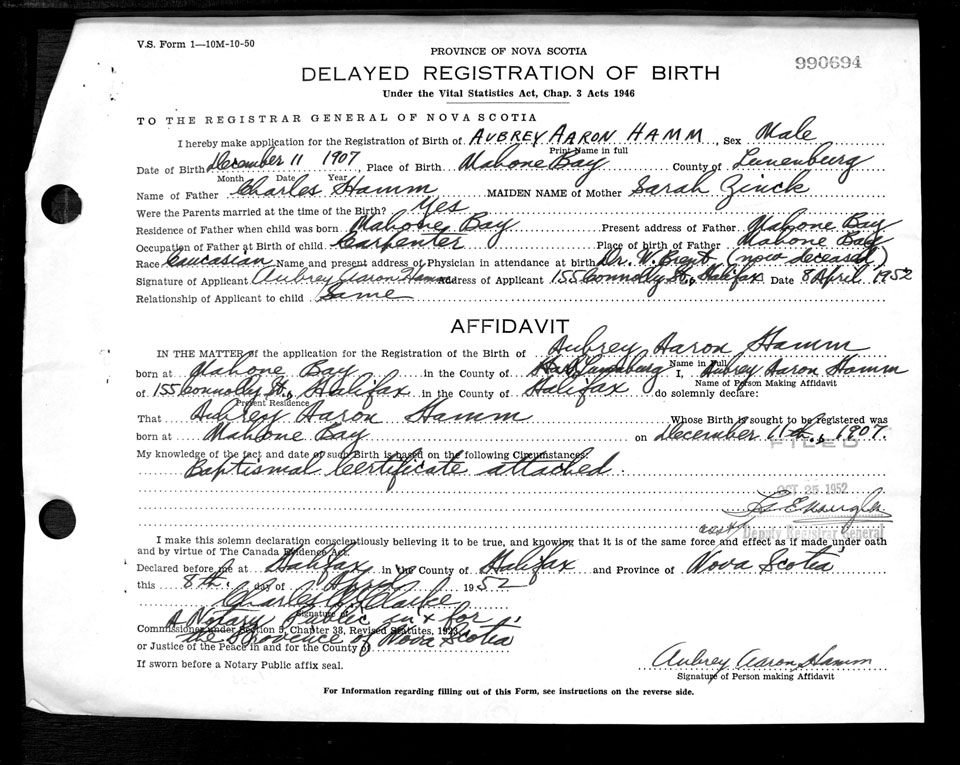 V.S. Form 1—10M-10-50
PROVINCE OF NOVA SCOTIA
990694
DELAYED REGISTRATION OF BIRTH
Under the Vital Statistics Act, Chap. 3 Acts 1946
TO THE REGISTRAR GENERAL OF NOVA SCOTIA
I hereby make application for the Registration of Birth of AUBREY AARON HAMM, Sex Male
Print Name in full
Date of Birth December 11 1907, Place of Birth Mahone Bay County of Lunenburg
Month Date Year
Name of Father Charles Hamm MAIDEN NAME of Mother Sarah Zinck
Were the Parents married at the time of the Birth? Yes
Residence of Father when child was born Mahone Bay Present address of Father Mahone Bay
Occupation of Father at Birth of child Carpenter Place of birth of Father Mahone Bay
Race Caucasian Name and present address of Physician in attendance at birth Dr. W. (now deceased)
Signature of Applicant Aubrey Aaron Hamm Address of Applicant 155 Connolly St., Halifax Date 8 April, 1952
Relationship of Applicant to child Same
AFFIDAVIT
IN THE MATTER of the application for the Registration of the Birth of Aubrey Aaron Hamm
Name in Full
born at Mahone Bay in the County of Lunenburg I, Aubrey Aaron Hamm
Name of Person Making Affidavit
of 155 Connolly St., Halifax in the County of Halifax do solemnly declare:
Present Residence
That Aubrey Aaron Hamm Whose Birth is sought to be registered was
born at Mahone Bay on December 11th., 1907.
FILED
My knowledge of the fact and date of such Birth is based on the following Circumstances:
Baptismal Certificate attached.
OCT 25 1952
Deputy Registrar General
I make this solemn declaration conscientiously believing it to be true, and knowing that it is of the same force and effect as if made under oath
and by virtue of The Canada Evidence Act.
Declared before me at Halifax in the County of Halifax and Province of Nova Scotia
this 8th. day of April 1952
Charles Clarke
Signature of
A Notary Public in & for
Commissioner under Section 5, Chapter 38, Revised Statutes, 1923
the Province of Nova Scotia
or Justice of the Peace in and for the County of
If sworn before a Notary Public affix seal.
Aubrey Aaron Hamm
Signature of Person making Affidavit
For Information regarding filling out of this Form, see instructions on the reverse side.